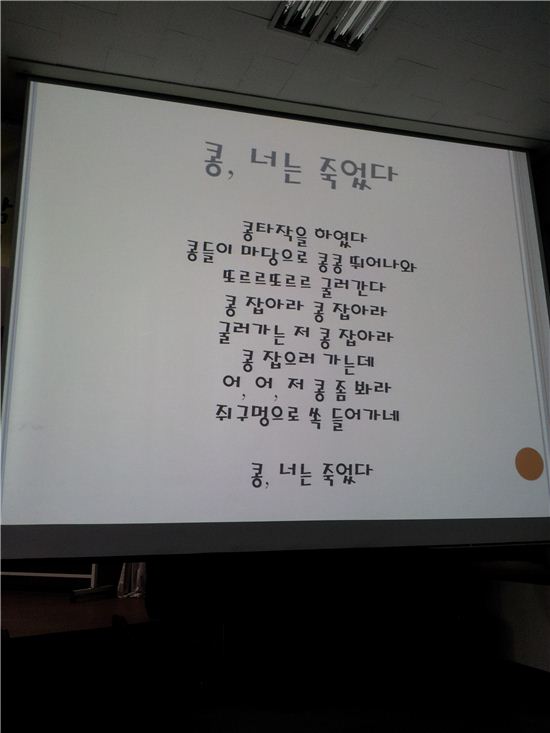 콩, 너는 죽었다
콩타작을 하였다
콩들이 마당으로 콩콩 뛰어나와
또르르또르르 굴러간다
콩 잡아라 콩 잡아라
굴러가는 저 콩 잡아라
콩 잡으러 가는데
어, 어, 저 콩 좀 봐라
쥐구멍으로 쏙 들어가네
콩, 너는 죽었다